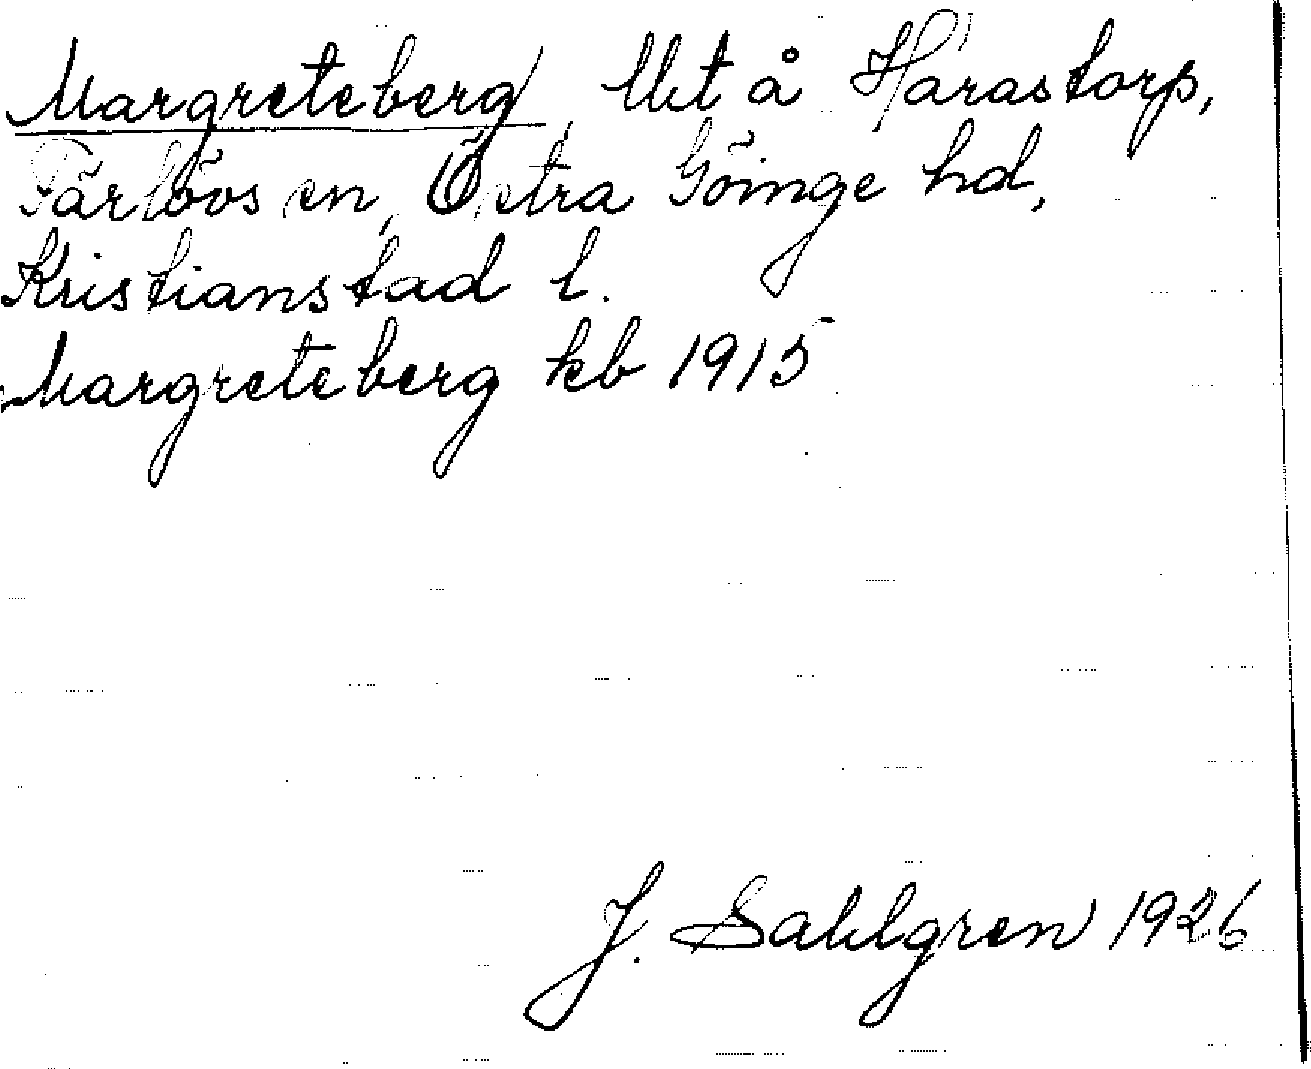 Margreteberg, lht å Härastorp,
Färlövs sn, Östra Göinge hd,
Kristianstad l.
Margreteberg kb 1915
J. Sahlgren 1926